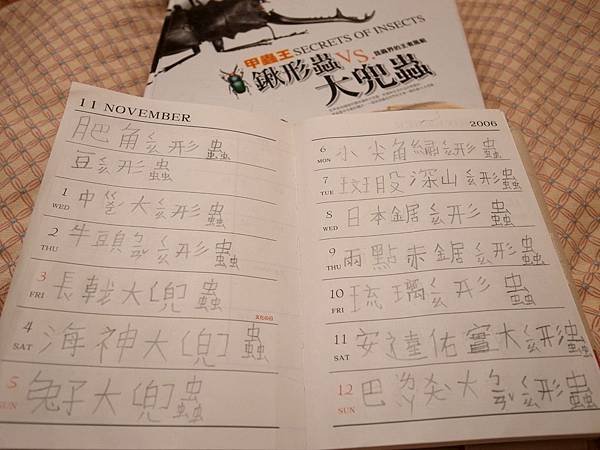 甲蟲王 SECRETS OF INSECTS
鍬形蟲 VS. 大兜蟲
11 NOVEMBER
肥角ㄑㄧㄠ形蟲
豆ㄑㄧㄠ形蟲
1 WED 中 大ㄑㄧㄠ形蟲
2 THU 牛頭 形蟲
3 FRI 長戟大(兜)蟲
文化の日
4 SAT 海神大(兜)蟲
5 SUN 兔子大(兜)蟲
2006
6 MON 小尖角繡ㄑㄧㄠ形蟲
7 TUE 玟股深山ㄑㄧㄠ形蟲
8 WED 日本鋸ㄑㄧㄠ形蟲
9 THU 兩點赤鋸ㄑㄧㄠ形蟲
10 FRI 琉璃ㄑㄧㄠ形蟲
11 SAT 安達佑實大ㄑㄧㄠ形蟲
12 SUN 巴ㄌㄚ 大 形蟲